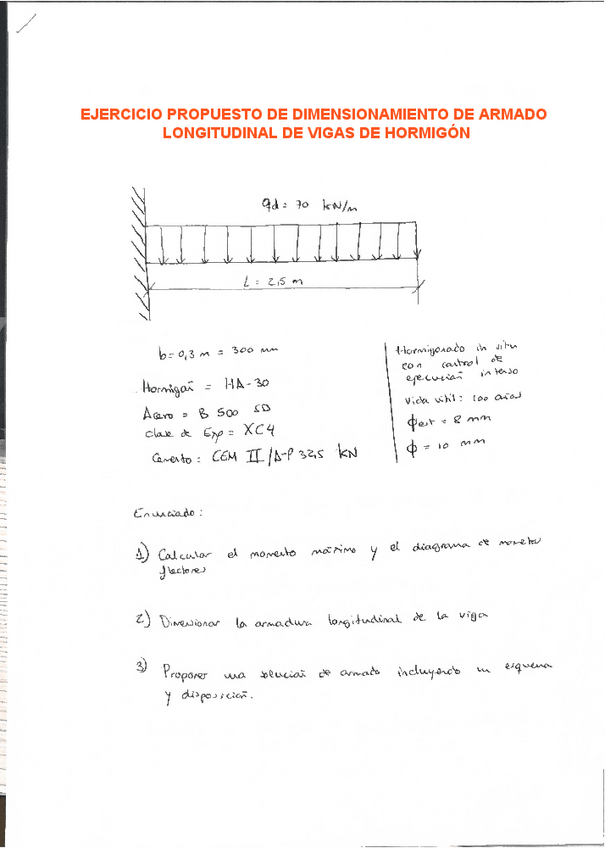 EJERCICIO PROPUESTO DE DIMENSIONAMIENTO DE ARMADO
LONGITUDINAL DE VIGAS DE HORMIGÓN
qd = 70 kN/m
L = 2,5 m
b = 0,3 m = 300 mm
Hormigón = HA-30
Acero = B 500 SD
Clase de Exp = XC4
Cemento: CEM II/A-P 32,5 kN
Hormigonado in situ
con control de
ejecución intenso
Vida útil: 100 años
ϕest = 8 mm
ϕ = 10 mm
Enunciado:
1) Calcular el momento máximo y el diagrama de momentos
flectores
2) Dimensionar la armadura longitudinal de la viga
3) Proponer una solución de armado incluyendo un esquema
y disposición.